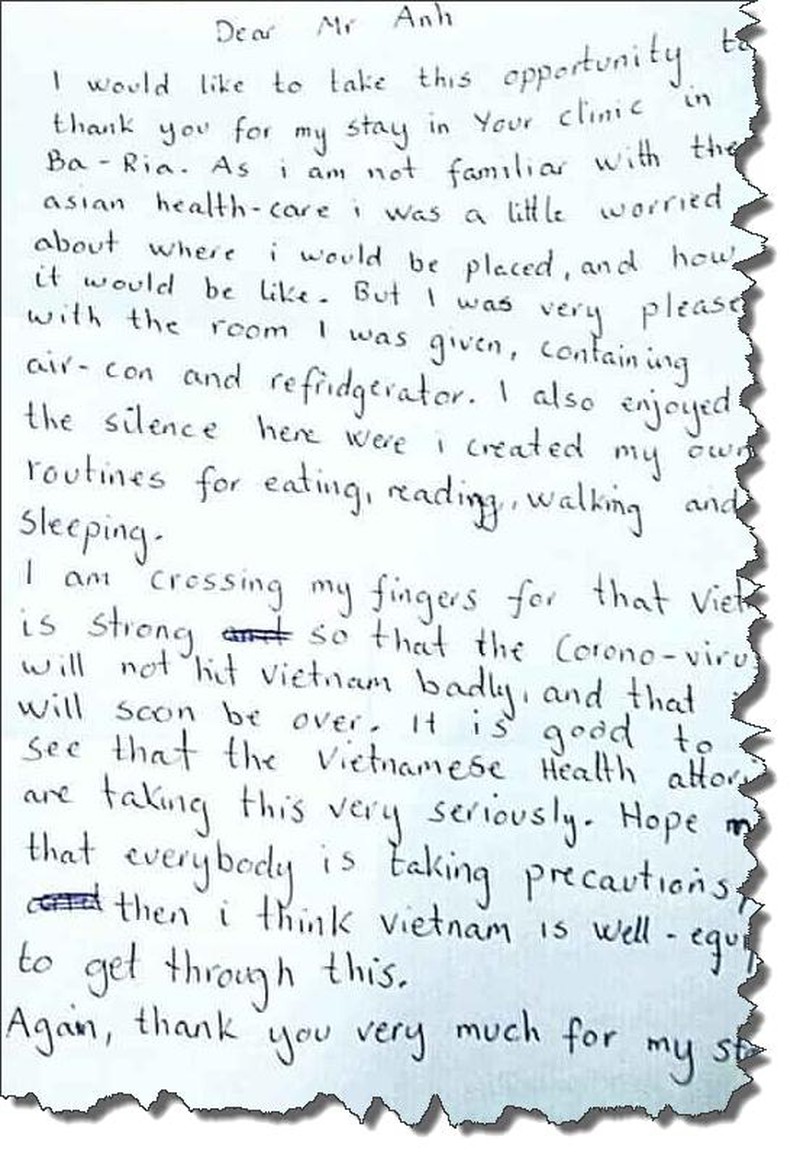 Dear Mr Anh
I would like to take this opportunity to
thank you for my stay in Your clinic in
Ba-Ria. As i am not familiar with the
asian health-care i was a little worried
about where i would be placed, and how
it would be like. But I was very please
with the room I was given, containing
air-con and refridgerator. I also enjoyed
the silence here were i created my own
routines for eating, reading, walking and
sleeping.
I am crossing my fingers for that Viet
is strong so that the Corono-viru
will not hit vietnam badly, and that
will soon be over. It is good to
see that the Vietnamese Health attori
are taking this very seriously. Hope
that everybody is taking precautions,
then i think vietnam is well-equi
to get through this.
Again, thank you very much for my sta